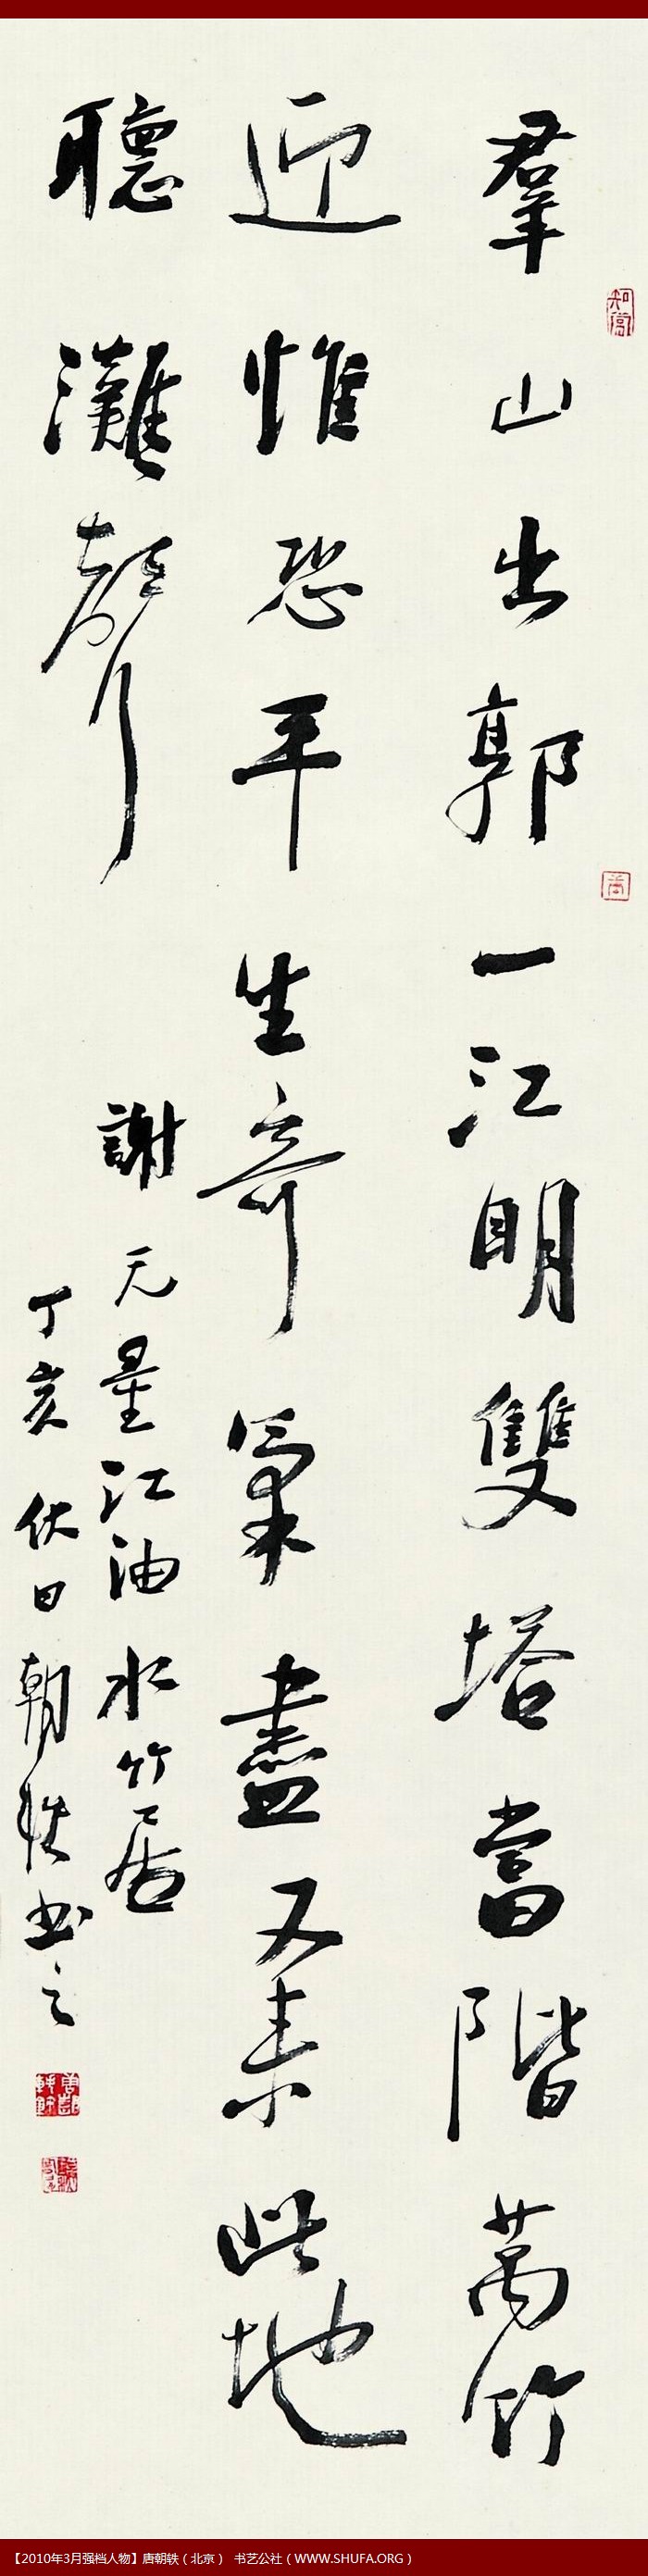 羣山出郭一江明雙塔當階萬竹
迎惟恐平生奇氣盡又来此地
聽灘聲
謝无量江油水竹居
丁亥伏日朝轶书之
【2010年3月强档人物】唐朝轶（北京） 书艺公社（WWW.SHUFA.ORG）